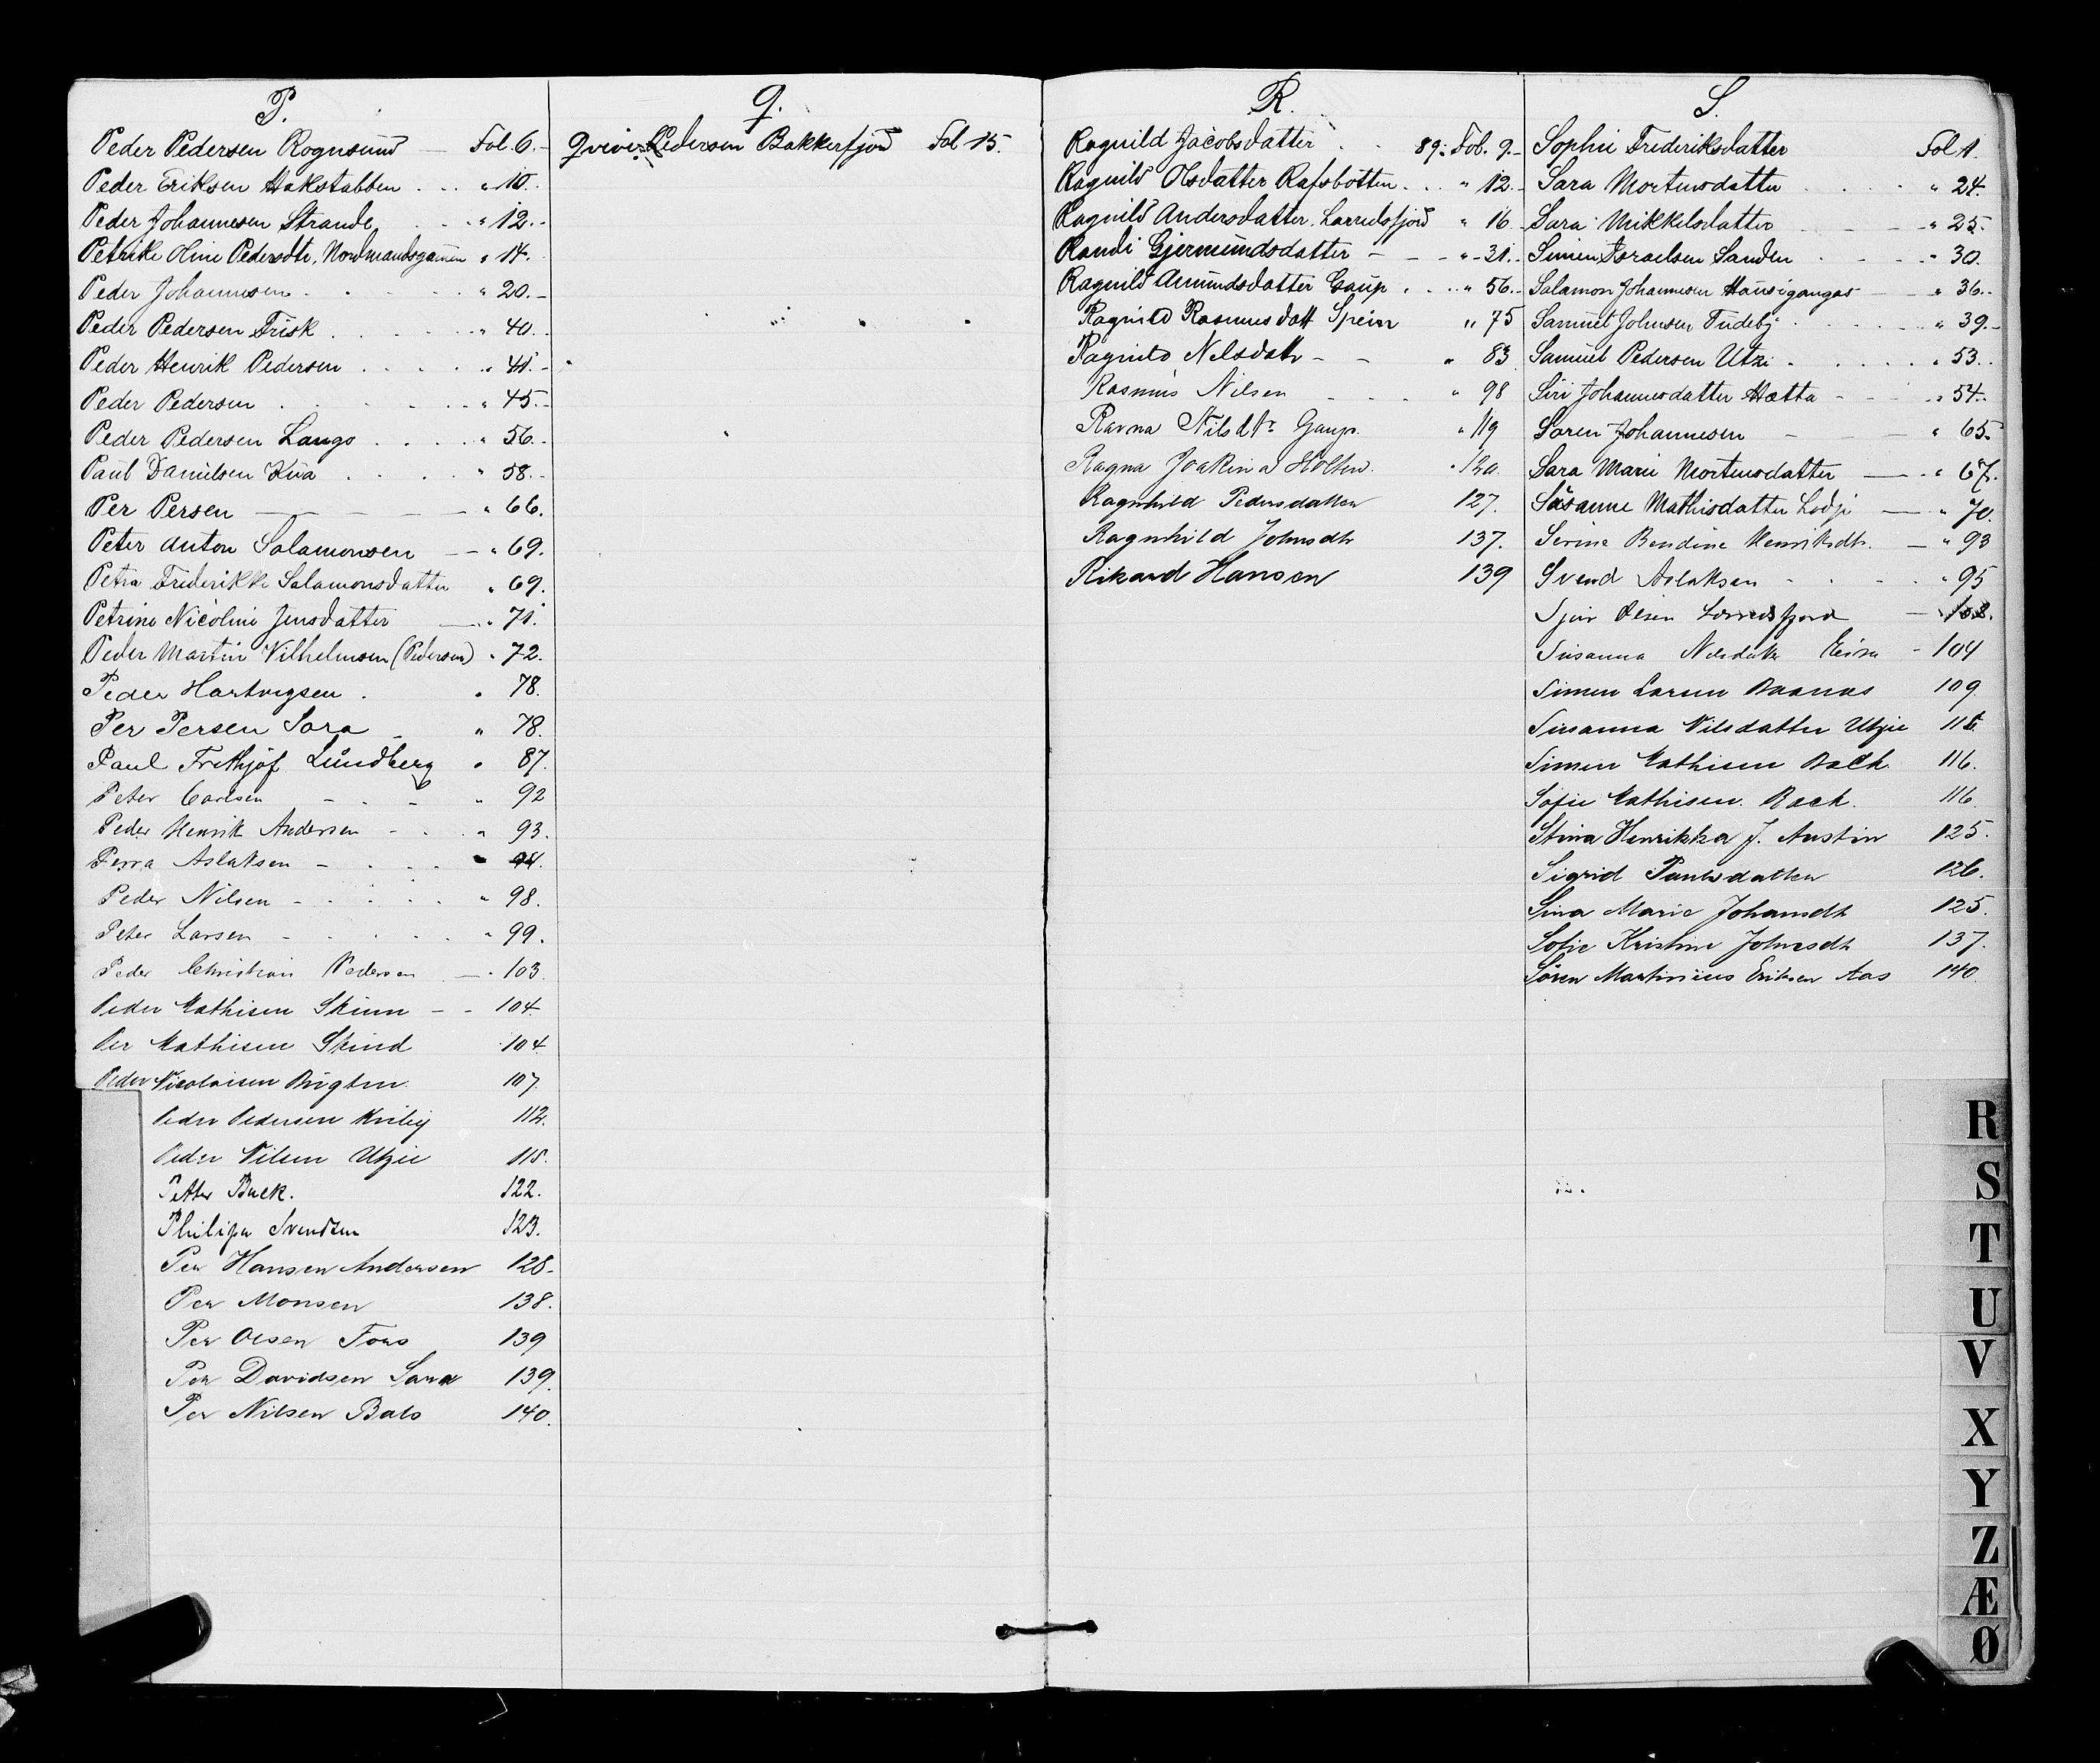 P.
Peder Pedersen Rognsund — Fol. 6.-
Peder Eriksen Hakstabben . . . " 10.
Peder Johannesen Strande . . " 12.-
Petrike Oline Pedersdtr. Nordmandsgamen " 14.
Peder Johannesen . . . . " 20.-
Peder Pedersen Frisk . . . . " 40.-
Peder Henrik Pedersen . . . . " 41.-
Peder Pedersen . . . . . " 45.-
Peder Pedersen Lango . . . . " 56.-
Paul Danielsen Kua . . . . " 58.-
Per Persen — — — — " 66.
Peter Anton Salamonsen — — " 69.
Petra Frederikke Salamonsdatter " 69.
Petrine Nicoline Jensdatter — " 71.
Peder Martin Vilhelmsen (Pedersen) " 72.
Peder Hartvigsen . " 78.
Per Persen Sara - " 78.
Paul Frithjof Lundberg " 87.
Peter Carlsen - . - " 92
Peder Henrik Andersen - . . " 93.
Perra Aslaksen - . . . 94.
Peder Nilsen - . . . . " 98.
Peter Larsen - . . . . " 99.
Peder Christian Pedersen — . 103.
Peder Mathisen Skinn - - 104
Per Mathisen Skind 104
Peder Nicolaisen Bugten 107.
Peder Pedersen 112.
Peder Nilsen Utzie 115.
Petter Buck. 122.
Philip Svendsen 123.
Per Hansen Andersen 128-
Per Monsen 138.
Per Olsen Fors 139
Per Davidsen Sara 139.
Per Nilsen Bals 140.
Q.
Qvivi Pedersen Bakkerfjord Fol 15.
R.
Ragnild Jacobsdatter . . 89: Fol. 9.-
Ragnild Olsdatter Rafsbotten . . . " 12.-
Ragnild Andersdatter. Larredsfjord " 16.-
Randi Gjermundsdatter - — - " 31.-
Ragnild Amundsdatter Gaup . . . " 56.-
Ragnild Rasmusdatt Spein " 75
Ragnild Nilsdatr - - " 83
Rasmus Nilsen - . . " 98
Ravna Nilsdtr Gaup. " 119
Ragna Joakina Holten. " 120.
Ragnhild Pedersdatter 127.
Ragnhild Johnsdtr 137.
Rikard Hansen 139
S.
Sophie Frederiksdatter Fol 1.
Sara Mortensdatter . . . . " 24.
Sara Mikkelsdatter - - - " 25.
Simen Israelsen Sanden . . . " 30.
Salamon Johannesen Hausigangas — " 36.-
Samuel Johnsen Tudeby . . . . " 39.-
Samuel Pedersen Utzi . . . . . " 53.-
Siri Johannesdatter Hætta - . . " 54.-
Soren Johannesen — — — " 65.
Sara Marie Mortensdatter — - " 67.
Susanne Mathisdatter Lodji — " 70.
Serine Bendine Henriksdtr. — " 93
Svend Aslaksen - . . . . " 95
Sjur Olsen Larredsfjord — " 102.
Susanna Nilsdatter Eira - 104
Simen Larsen Baanas 109.
Susanna Nilsdatter Utzie 115
Simen Mathisen Bach 116.
Sofie Mathisen. Bach. 116.
Stina Henrikka J. Austin 125.
Sigrid Paulsdatter 126.
Sina Marie Johansdtr 125.
Sofie Kristine Johnsdtr 137.
Søren Martinius Eriksen Aas 140.
R
S
T
U
V
X
Y
Z
Æ
Ø